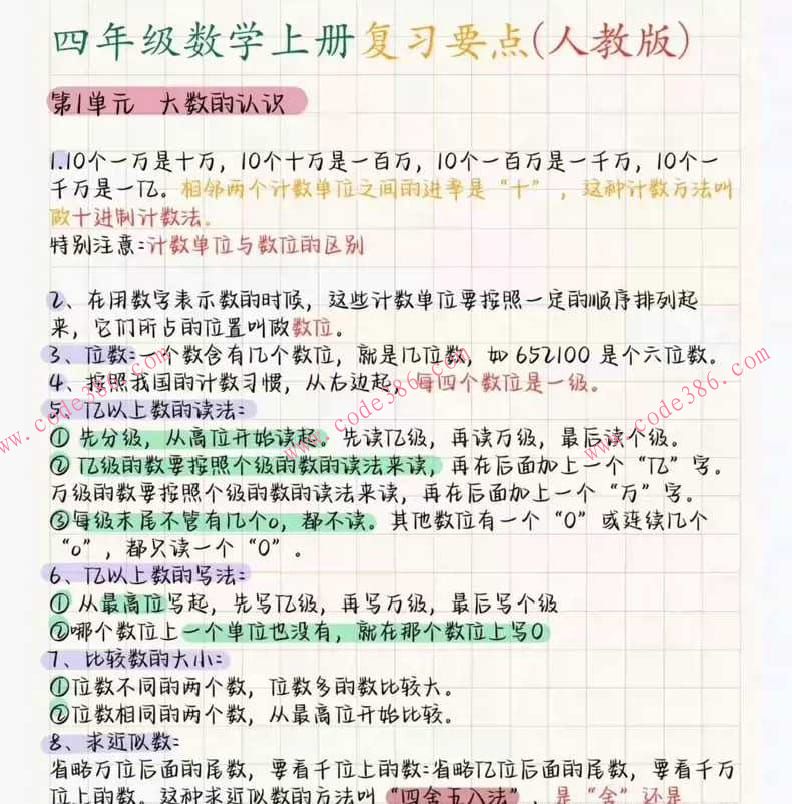 四年级数学上册复习要点(人教版)
第1单元 大数的认识
1.10个一万是十万，10个十万是一百万，10个一百万是一千万，10个一
千万是一亿。相邻两个计数单位之间的进率是“十”，这种计数方法叫
做十进制计数法。
特别注意:计数单位与数位的区别
2、在用数字表示数的时候，这些计数单位要按照一定的顺序排列起
来，它们所占的位置叫做数位。
3、位数:一个数含有几个数位，就是几位数，如 652100 是个六位数。
4、按照我国的计数习惯，从右边起，每四个数位是一级。
5、亿以上数的读法:
① 先分级，从高位开始读起。先读亿级，再读万级，最后读个级。
② 亿级的数要按照个级的数的读法来读，再在后面加上一个“亿”字。
万级的数要按照个级的数的读法来读，再在后面加上一个“万”字。
③每级末尾不管有几个0，都不读。其他数位有一个“0”或连续几个
“0”，都只读一个“0”。
6、亿以上数的写法:
① 从最高位写起，先写亿级，再写万级，最后写个级
②哪个数位上一个单位也没有，就在那个数位上写0
7、比较数的大小:
①位数不同的两个数，位数多的数比较大。
②位数相同的两个数，从最高位开始比较。
8、求近似数:
省略万位后面的尾数，要看千位上的数:省略亿位后面的尾数，要看千万
位上的数。这种求近似数的方法叫“四舍五入法”，是“舍”还是
www.code386.com
www.code386.com
www.code386.com